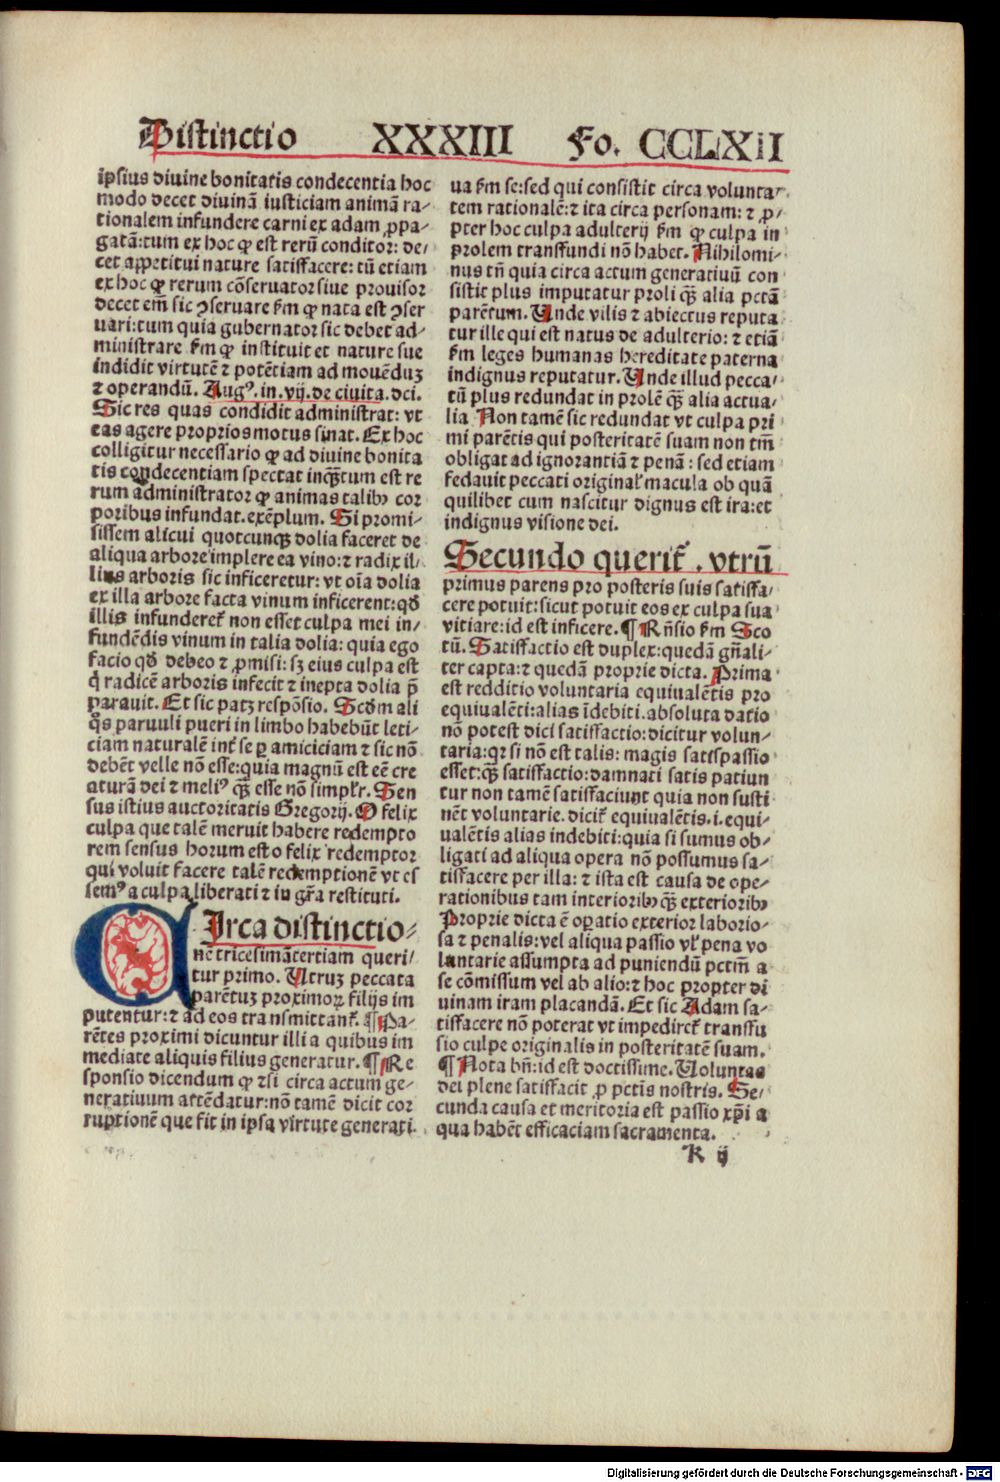 Distinctio XXXIII Fo. CCLXII
ipsius diuine bonitatis condecentia hoc
modo decet diuinā iusticiam animā ra-
tionalem infundere carni ex adam ꝓpa-
gatā: tum ex hoc ꝙ est rerū conditor: de-
cet appetitui nature satisfacere: tū etiam
ex hoc ꝙ rerum cōseruator siue prouisor
decet em̄ sic ꝯseruare ẜm ꝙ nata est ꝯser
uari: tum quia gubernator sic debet ad-
ministrare ẜm ꝙ instituit et nature sue
indidit virtutē ⁊ potētiam ad mouēduꝫ
⁊ operandū. Augꝰ. in. vij. de ciuita. dei.
Sic res quas condidit administrat: vt
eas agere proprios motus sinat. Ex hoc
colligitur necessario ꝙ ad diuine bonita
tis condecentiam spectat inꝙ̄tum est re
rum administrator ꝙ animas talibꝫ cor
poribus infundat. exēplum. Si promi-
sissem alicui quotcunqꝫ dolia faceret de
aliqua arbore implere ea vino: ⁊ radix il-
lius arboris sic inficeretur: vt oīa dolia
ex illa arbore facta vinum inficerent: qđ
illis infunderet̉ non esset culpa mei in-
fundēdis vinum in talia dolia: quia ego
facio qđ debeo ⁊ ꝓmisi: sꝫ eius culpa est
q̇ radicē arboris infecit ⁊ inepta dolia p̄
parauit. Et sic patꝫ respōsio. Scđm ali
q̊s paruuli pueri in limbo habebūt leti-
ciam naturalē int̉ se ꝑ amiciciam ⁊ sic nō
debēt velle nō esse: quia magnū est eē cre
aturā dei ⁊ meliꝰ qꝫ esse nō simpl̉r. Sen
sus istius auctoritatis Gregorij. O felix
culpa que talē meruit habere redempto
rem sensus horum est o felix redemptor
qui voluit facere talē redemptionē vt es
semꝰ a culpa liberati ⁊ in gr̄a restituti.
CIrca distinctio-
nē tricesimātertiam queri-
tur primo. Utruꝫ peccata
parētuꝫ proximoꝝ filijs im
putentur: ⁊ ad eos transmittant̉. ¶ Pa-
rētes proximi dicuntur illi a quibus im
mediate aliquis filius generatur. ¶ Re
sponsio dicendum ꝙ ⁊si circa actum ge-
neratiuum attēdatur: nō tamē dicit cor
ruptionē que fit in ipsa virtute generati
ua ẜm se: sed qui consistit circa volunta-
tem rationalē: ⁊ ita circa personam: ⁊ ꝓ-
pter hoc culpa adulterij ẜm ꝙ culpa in
prolem transfundi nō habet. Nihilomi-
nus tn̄ quia circa actum generatiuū con
sistit plus imputatur proli qꝫ alia pctā
parētum. Unde vilis ⁊ abiectus reputa
tur ille qui est natus de adulterio: ⁊ etiā
ẜm leges humanas hereditate paterna
indignus reputatur. Unde illud pecca-
tū plus redundat in prolē qꝫ alia actua-
lia Non tamē sic redundat vt culpa pri
mi parētis qui posteritatē suam non tm̄
obligat ad ignorantiā ⁊ penā: sed etiam
fedauit peccati original̉ macula ob quā
quilibet cum nascitur dignus est ira: et
indignus visione dei.
Secundo querit̉. vtrū
primus parens pro posteris suis satisfa-
cere potuit: sicut potuit eos ex culpa sua
vitiare: id est inficere. ¶ Rn̄sio ẜm Sco
tū. Satisfactio est duplex: quedā gn̄ali-
ter capta: ⁊ quedā proprie dicta. Prima
est redditio voluntaria equiualētis pro
equiualēti: alias īdebiti. absoluta datio
nō potest dici satisfactio: dicitur volun-
taria: qꝛ si nō est talis: magis satispassio
esset: qꝫ satisfactio: damnati satis patiun
tur non tamē satisfaciunt quia non susti
nēt voluntarie. dicit̉ equiualētis. i. equi-
ualētis alias indebiti: quia si sumus ob-
ligati ad aliqua opera nō possumus sa-
tisfacere per illa: ⁊ ista est causa de ope-
rationibus tam interioribꝫ qꝫ exterioribꝫ
Proprie dicta ē oꝑatio exterior laborio-
sa ⁊ penalis: vel aliqua passio vl̉ pena vo
luntarie assumpta ad puniendū pctm̄ a
se cōmissum vel ab alio: ⁊ hoc propter di
uinam iram placandā. Et sic Adam sa-
tisfacere nō poterat vt impediret̉ transfu
sio culpe originalis in posteritatē suam.
¶ Nota bn̄: id est doctissime. Uoluntas
dei plene satisfacit ꝓ pctīs nostris. Se-
cunda causa et meritoria est passio xp̄i a
qua habēt efficaciam sacramenta.
K ij
Digitalisierung gefördert durch die Deutsche Forschungsgemeinschaft - DFG